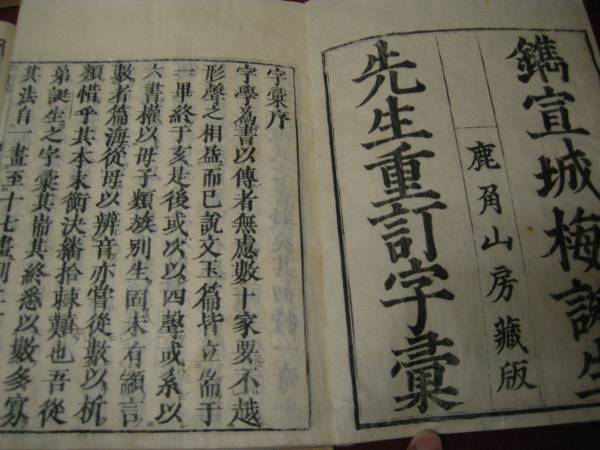 鐫宣城梅誕生
鹿角山房藏版
先生重訂字彙
字彙序
字學為書以傳者無慮數十家要不越
形聲之相益而已說文玉篇皆立耑于
一畢終于亥是後或次以四聲或系以
六書權以母子類族別生固未有纇言
數者篇海從母以辨音亦嘗從數以析
類惜乎其本末衡決繙拾棘蘱也吾從
弟誕生之字彙其耑其終悉以數多寡
其法自一畫至十七畫列二